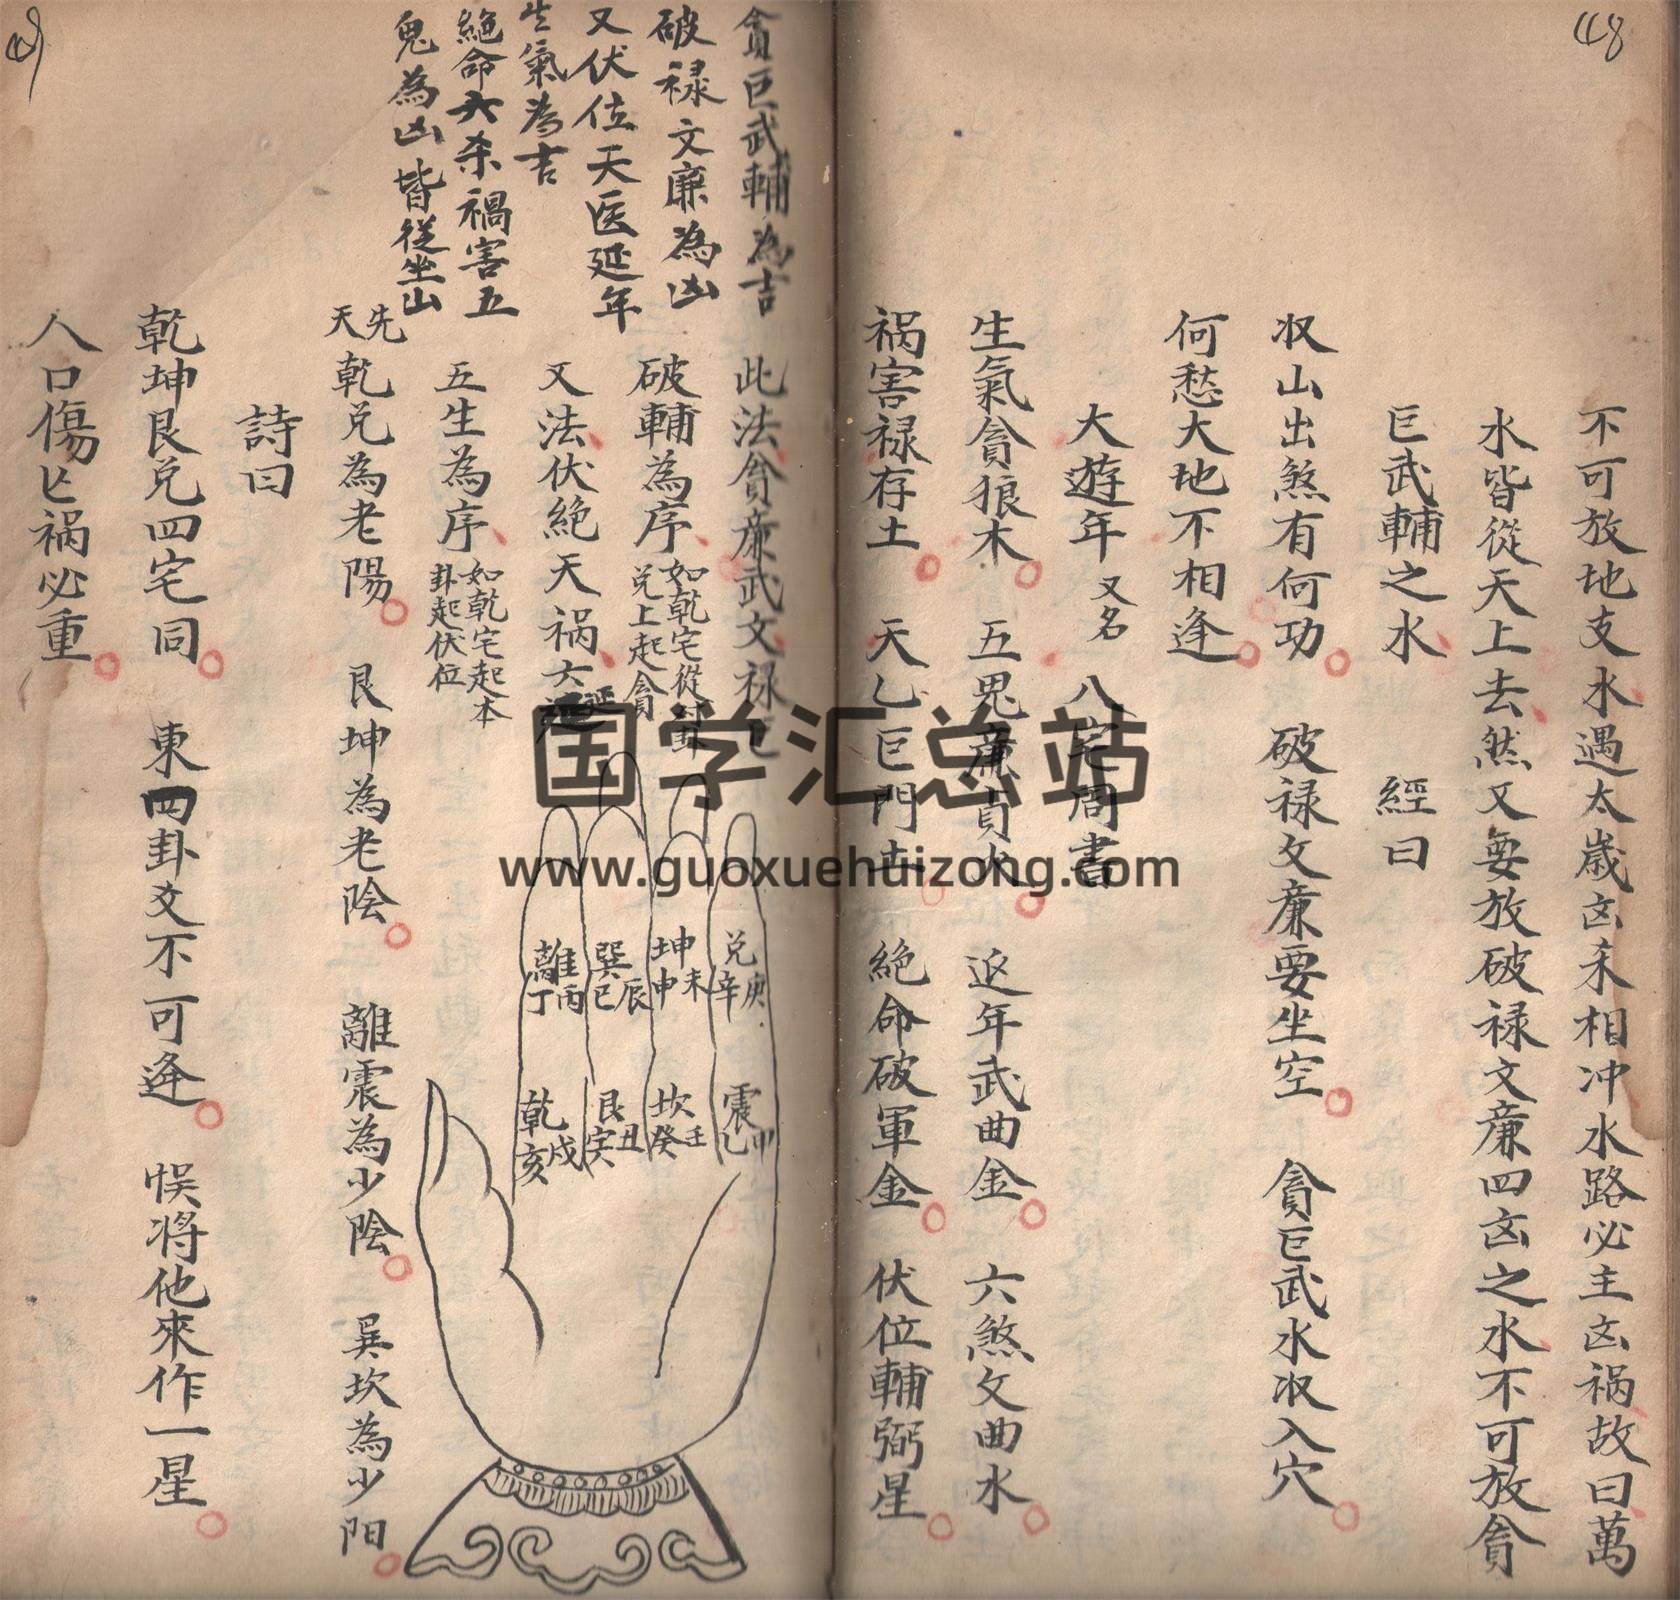 48
不可放地支水遇太歲凶杀相冲水路必主凶祸故曰萬
水皆從天上去然又要放破禄文廉四凶之水不可放貪
巨武輔之水 經曰
収山出煞有何功 破禄文廉要坐空 貪巨武水収入穴
何愁大地不相逢
大遊年 又名 八宅周書
生氣貪狼木 五鬼廉貞火 延年武曲金 六煞文曲水
祸害禄存土 天乙巨門土 絶命破軍金 伏位輔弼星
貪巨武輔為吉
破禄文廉為凶
又伏位天医延年
生氣為吉
絕命六杀禍害五
鬼為凶皆從坐山
此法貪廉武文禄巨
破輔為序 如乾宅從對
兑上起貪
又法伏絕天祸六延
五生為序 如乾宅起本
卦起伏位
兑庚辛
坤未申
巽辰巳
離丙丁
震甲乙
坎壬癸
艮丑寅
乾戌亥
先天 乾兑為老陽 艮坤為老陰 離震為少陰 巽坎為少阳
詩曰
乾坤艮兑四宅同 東四卦爻不可逢 悮将他來作一星
人口傷亡祸必重
国学汇总站
www.guoxuehuizong.com